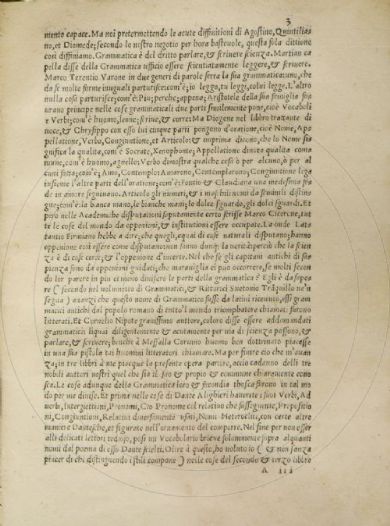 3
mento capace. Ma noi pretermettendo le acute diffinitioni di Agostino, Quintilia
no, et Diomede; secondo lo nostro negotio per hora bastevole, questa sola dittione
così diffiniamo. Grammatica è del dritto parlare, & scrivere scienza. Martian ca
pella disse della Grammatica ufficio essere scientiatamente leggere, & scrivere.
Marco Terentio Varone in due generi di parole serra la sua grammatica: uno, che
da se molte forme ineguali parturisce: com'è; io leggo, tu leggi, colui legge. L'altro
nulla cosa parturisce: com'è; Pèr; perche; appena; Aristotele della sua famiglia
urano principe nelle cose grammaticali due parti simplemente pone, cioè Vocaboli
e Verbi: com'è huomo, leone; scrive, & corre: Ma Diogene nel libro trattante di
voce, & Chrysippo con esso lui cinque parti pongono d'oratione, cioè Nome, Ap
pellatione, Verbo, Congiuntione, et Articolo: & inprima dicono, che lo Nome si
gnifica la qualità, com'è Socrate, Xenophonte; Appellatione dinota qualità comu
mune, com'è huomo, agnello: Verbo dimostra qualche cosa ò per alcuno, ò per al
cuni fatta; com'è; Amo, Contemplo: Amaremo, Contemplaremo; Congiuntione lega
insieme l'altre parti dell'oratione; com'è; Fontio & Claudiana una medesima
de in amore seguirono. Articolo gli numeri, & i mascolini nomi da feminili distin
gue; com'è la bianca mano, le bianche mani; lo dolce sguardo, gli dolci sguardi. Et
però nelle Academiche disputationi saputamente certo scrisse Marco Cicerone, tut
te le cose del mondo da oppenioni, & institutioni essere occupate. La onde Lat
tantio Firmiano hebbe a dire, che quegli, i quai di cose naturali disputano; hanno
oppenione così essere come disputano: non sanno dunque la verità: perciò che la scien
za è di cose certe; & l'oppenione d'incerte. Nel che se gli capitani antichi di sa
pienza sono da oppenioni guidati; che maraviglia ci può occorrere, se molti secon
do lor parere in più et meno divisero le parti della grammatica? Egli è da sape
re (secondo nel volumetto di Grammatici, & Rhetorici Suetonio Tranquillo ne'n
segna) avanzi che questo nome di Grammatico fosse da latini ricevuto, essi gram
matici antichi dal popolo romano di tutto'l mondo triomphatore chiamati furono
literati. Et Cornelio Nipote gravissimo auttore, coloro disse essere addimandati
grammatici li quai diligentemente & acutamente per via di scienza possono, &
parlare, & scrivere; benche à Messalla Corvino huomo ben dottrinato piacesse
in una sua pistola tai huomini letteratori chiamare. Ma per finire ciò che m'avan
za; in tre libri à me piacque la presente opera partire, acciò cadauno delli tre
nobili auttori nostri quel che sia il loro & proprio & comune chiaramente cono
sca. Le cose adunque della Grammatica loro & secondia thosca sirono in tal mo
do per me divise. Et prima nelle cose di Dante Alighieri haverete i suoi Verbi, Ad
verbi, Intergiettioni, Pronomi, Ciò Pronome col relativo che sosseguente, Prepositio
ni, Congiuntioni, Relativi diversamente usati, Nomi Heterocliti, con certe altre
maniere Dantesche, et figurate nell'ornamento del comporre. Nel fine per non esser
alli delicati lettori tedioso, posi un Vocabolario brieve solamente sopra alquanti
nomi dal poema di esso Dante scielti. Oltre à questo, ho voluto io (& non senza
piacer di chi distinguendo i stili compone) nelle cose del secondo & terzo libro
A III